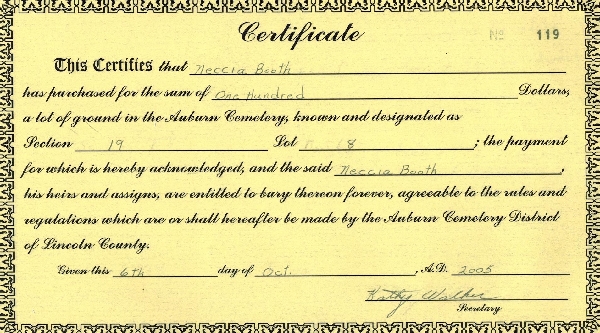 Certificate
No 119
This Certifies that Neccia Booth
has purchased for the sum of One Hundred Dollars,
a lot of ground in the Auburn Cemetery, known and designated as
Section 19 Lot 8 ; the payment
for which is hereby acknowledged, and the said Neccia Booth ,
his heirs and assigns, are entitled to bury thereon forever, agreeable to the rules and
regulations which are or shall hereafter be made by the Auburn Cemetery District
of Lincoln County.
Given this 6th day of Oct. , A.D. 2005
Kathy Walker
Secretary